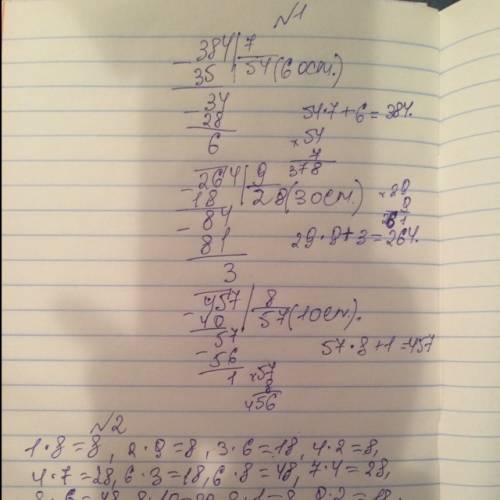 №1
-384|7
35 54(6 ост.)
-34 54·7+6=384.
28 ×54
6 7
378
-264|9 ×29
18 29(3 ост.) 9
-84 261
81 29·9+3=264.
3
-457|8
40 57(1 ост.).
57 57·8+1=457
-56
1 ×57
8
456
№2
1·8=8, 2·9=8, 3·6=18, 4·2=8,
4·7=28, 6·3=18, 6·8=48, 7·4=28,
8·6=48, 9·2=18